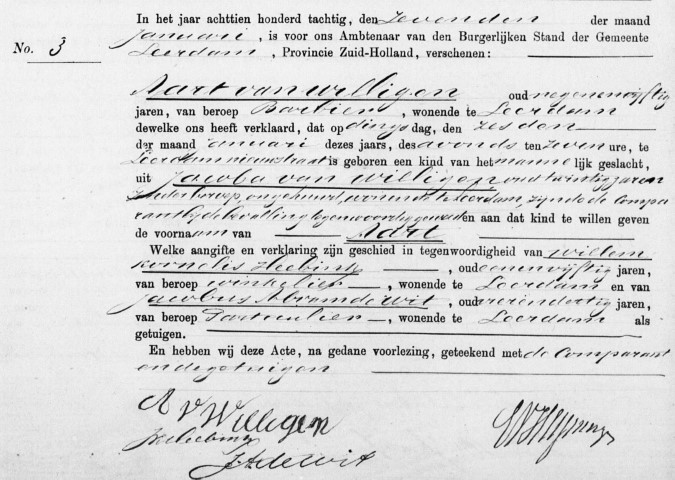 In het jaar achttien honderd tachtig, den zevenden der maand
januari, is voor ons Ambtenaar van den Burgerlijken Stand der Gemeente
No. 3
Leerdam, Provincie Zuid-Holland, verschenen:
Aart van Willigen oud negenenvijftig
jaren, van beroep Barbier, wonende te Leerdam
dewelke ons heeft verklaard, dat op dingsdag, den zesden
der maand januari dezes jaars, des avonds ten zeven ure, te
Leerdam nieuwstraat is geboren een kind van het mannelijk geslacht,
uit Jacoba van Willigen oud twintig jaren
zonder beroep, ongehuwd, wonende te Leerdam, zijnde de Compa
rant bij de bevalling tegenwoordig geweest en aan dat kind te willen geven
de voornaam van Aart
Welke aangifte en verklaring zijn geschied in tegenwoordigheid van Willem
Kornelis Heebink, oud eenenvijftig jaren,
van beroep winkelier, wonende te Leerdam en van
Jacobus Abram de Wit, oud vierendertig jaren,
van beroep Particulier, wonende te Leerdam als
getuigen.
En hebben wij deze Acte, na gedane voorlezing, geteekend met de Comparant
en de getuigen
A v Willigen
JA de Wit